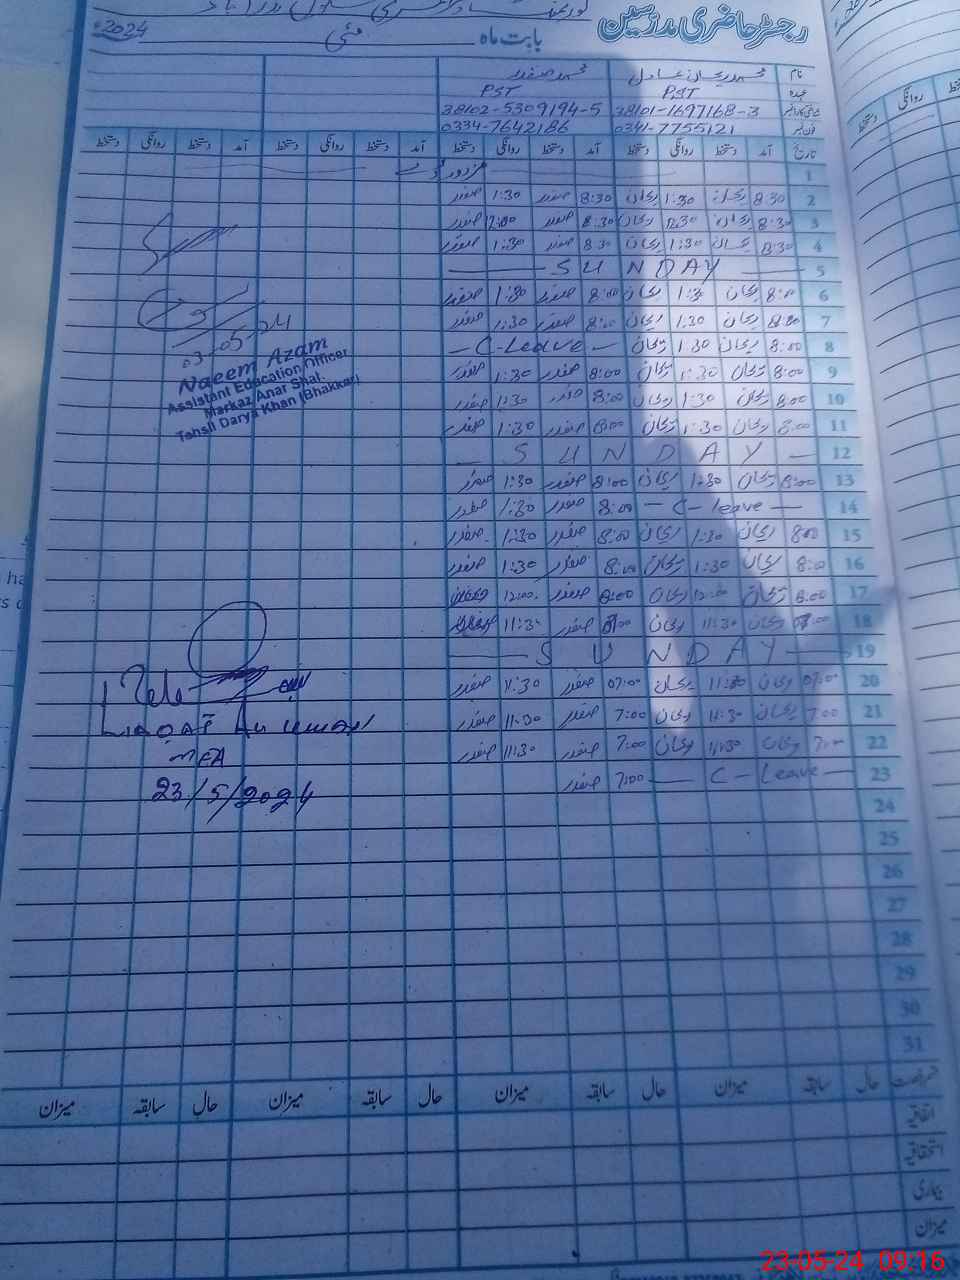 رجسٹر حاضری مدرسین
بابت ماہ مئی 2024ء
نام محمد ریحان عادل محمد صفدر
عہدہ PST PST
38101-1697168-3 38102-5309194-5
فون نمبر 0341-7755121 0334-7642186
تاریخ آمد دستخط روانگی دستخط آمد دستخط روانگی دستخط آمد دستخط روانگی دستخط آمد دستخط روانگی دستخط
1
2 8:30 ریحان 1:30 ریحان 8:30 صفدر 1:30 صفدر
3 8:30 ریحان 12:30 ریحان 8:30 صفدر 12:00 صفدر
4 8:30 ریحان 1:30 ریحان 8:30 صفدر 1:30 صفدر
5 SUNDAY
6 8:00 ریحان 1:30 ریحان 8:00 صفدر 1:30 صفدر
7 8:00 ریحان 1:30 ریحان 8:00 صفدر 1:30 صفدر
8 8:00 ریحان 1:30 ریحان - C-Leave -
9 8:00 ریحان 1:30 ریحان 8:00 صفدر 1:30 صفدر
10 8:00 ریحان 1:30 ریحان 8:00 صفدر 1:30 صفدر
11 8:00 ریحان 1:30 ریحان 8:00 صفدر 1:30 صفدر
12 - SUNDAY -
13 8:00 ریحان 1:30 ریحان 8:00 صفدر 1:30 صفدر
14 - C-leave - 8:00 صفدر 1:30 صفدر
15 8:00 ریحان 1:30 ریحان 8:00 صفدر 1:30 صفدر
16 8:00 ریحان 1:30 ریحان 8:00 صفدر 1:30 صفدر
17 8:00 ریحان 12:00 ریحان 8:00 صفدر 12:00 صفدر
18 07:00 ریحان 11:30 ریحان 07:00 صفدر 11:30 صفدر
19 SUNDAY
20 07:00 ریحان 11:30 ریحان 07:00 صفدر 11:30 صفدر
21 7:00 ریحان 11:30 ریحان 7:00 صفدر 11:30 صفدر
22 7:00 ریحان 11:30 ریحان 7:00 صفدر 11:30 صفدر
23 - C-Leave - 7:00 صفدر
24
25
26
27
28
29
30
31
03-05-24
Naeem Azam
Assistant Education Officer
Markaz Anar Shal.
Tehsil Darya Khan (Bhakkar)
MEA
23/5/2024
حال سابقہ میزان حال سابقہ میزان حال سابقہ میزان حال سابقہ میزان
اتفاقیہ
استحقاقیہ
بیماری
میزان
23-05-24 09:16